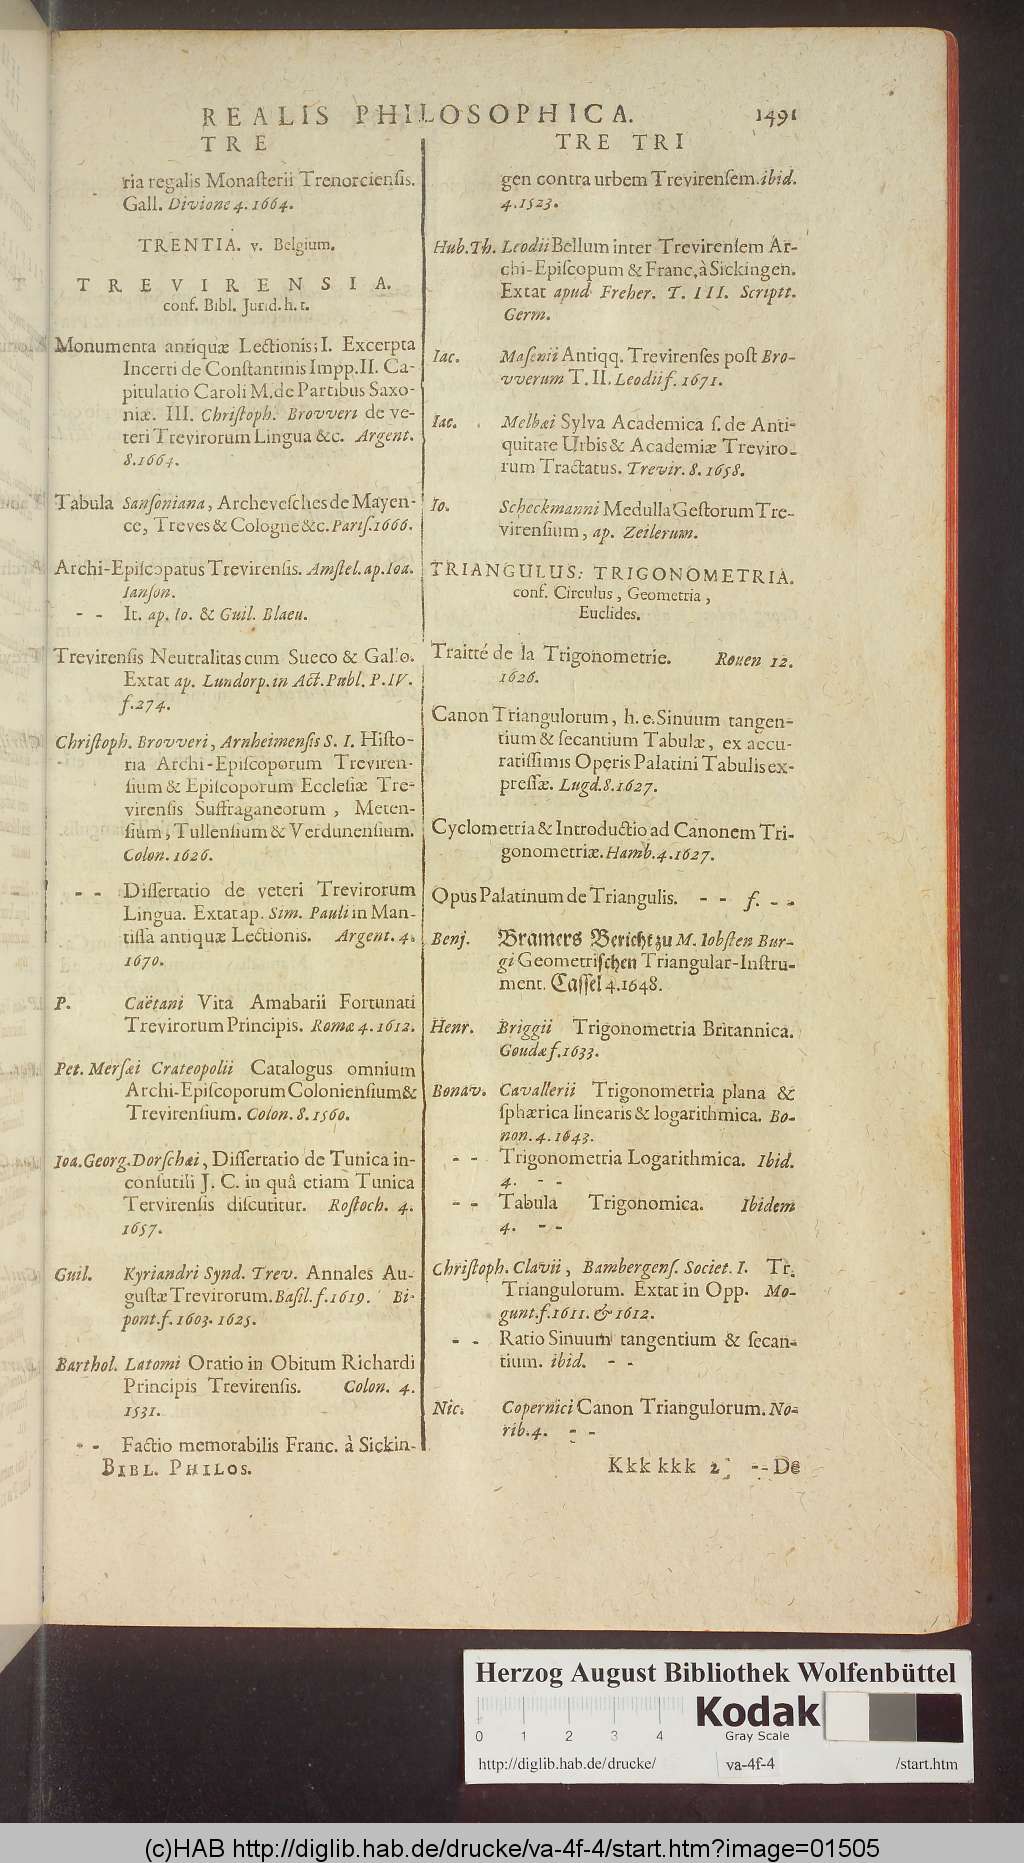 REALIS PHILOSOPHICA. 1491
TRE
ria regalis Monaſterii Trenorcienſis.
Gall. Divione 4. 1664.
TRENTIA. v. Belgium.
TREVIRENSIA.
conf. Bibl. Jurid. h. t.
Monumenta antiquæ Lectionis; I. Excerpta
Incerti de Conſtantinis Impp. II. Ca-
pitulatio Caroli M. de Partibus Saxo-
niæ. III. Chriſtoph. Brovveri de ve-
teri Trevirorum Lingua &c. Argent.
8. 1664.
Tabula Sanſoniana, Archeveſches de Mayen-
ce, Treves & Cologne &c. Pariſ. 1666.
Archi-Epiſcopatus Trevirenſis. Amſtel. ap. Ioa.
Ianſon.
- - It. ap. Io. & Guil. Blaeu.
Trevirenſis Neutralitas cum Sueco & Gallo.
Extat ap. Lundorp. in Act. Publ. P. IV.
f. 274.
Chriſtoph. Brovveri, Arnheimenſis S. I. Hiſto-
ria Archi-Epiſcoporum Treviren-
ſium & Epiſcoporum Eccleſiæ Tre-
virenſis Suffraganeorum, Meten-
ſium, Tullenſium & Verdunenſium.
Colon. 1626.
- - Diſſertatio de veteri Trevirorum
Lingua. Extat ap. Sim. Pauli in Man-
tiſſa antiquæ Lectionis. Argent. 4.
1670.
P. Caëtani Vita Amabarii Fortunati
Trevirorum Principis. Romæ 4. 1612.
Pet. Merſæi Crateopolii Catalogus omnium
Archi-Epiſcoporum Colonienſium &
Trevirenſium. Colon. 8. 1560.
Ioa. Georg. Dorſchæi, Diſſertatio de Tunica in-
conſutili J. C. in quâ etiam Tunica
Tervirenſis diſcutitur. Roſtoch. 4.
1657.
Guil. Kyriandri Synd. Trev. Annales Au-
guſtæ Trevirorum. Baſil. f. 1619. Bi-
pont. f. 1603. 1625.
Barthol. Latomi Oratio in Obitum Richardi
Principis Trevirenſis. Colon. 4.
1531.
- - Factio memorabilis Franc. à Sickin-
BIBL. PHILOS.
TRE TRI
gen contra urbem Trevirenſem. ibid.
4. 1523.
Hub. Th. Leodii Bellum inter Trevirenſem Ar-
chi-Epiſcopum & Franc. à Sickingen.
Extat apud Freher. T. III. Scriptt.
Germ.
Iac. Maſenii Antiqq. Trevirenſes poſt Bro-
vverum T. II. Leodii f. 1671.
Iac. Melhæi Sylva Academica ſ. de Anti-
quitate Urbis & Academiæ Treviro-
rum Tractatus. Trevir. 8. 1658.
Io. Scheckmanni Medulla Geſtorum Tre-
virenſium, ap. Zeilerum.
TRIANGULUS: TRIGONOMETRIA.
conf. Circulus, Geometria,
Euclides.
Traitté de la Trigonometrie. Rouen 12.
1626.
Canon Triangulorum, h. e. Sinuum tangen-
tium & ſecantium Tabulæ, ex accu-
ratiſſimis Operis Palatini Tabulis ex-
preſſæ. Lugd. 8. 1627.
Cyclometria & Introductio ad Canonem Tri-
gonometriæ. Hamb. 4. 1627.
Opus Palatinum de Triangulis. - - f. - -
Benj. Bramers Bericht zu M. Iobſten Bur-
gi Geometriſchen Triangular-Inſtru-
ment. Caſſel 4. 1648.
Henr. Briggii Trigonometria Britannica.
Goudæ f. 1633.
Bonav. Cavallerii Trigonometria plana &
ſphærica linearis & logarithmica. Bo-
non. 4. 1643.
- - Trigonometria Logarithmica. Ibid.
4. - -
- - Tabula Trigonomica. Ibidem
4. - -
Chriſtoph. Clavii, Bambergenſ. Societ. I. Tr.
Triangulorum. Extat in Opp. Mo-
gunt. f. 1611. & 1612.
- - Ratio Sinuum tangentium & ſecan-
tium. ibid. - -
Nic. Copernici Canon Triangulorum. No-
rib. 4. - -
Kkk kkk 2 - - De
Herzog August Bibliothek Wolfenbüttel
0 1 2 3 4
Kodak
Gray Scale
http://diglib.hab.de/drucke/ va-4f-4 /start.htm
(c)HAB http://diglib.hab.de/drucke/va-4f-4/start.htm?image=01505